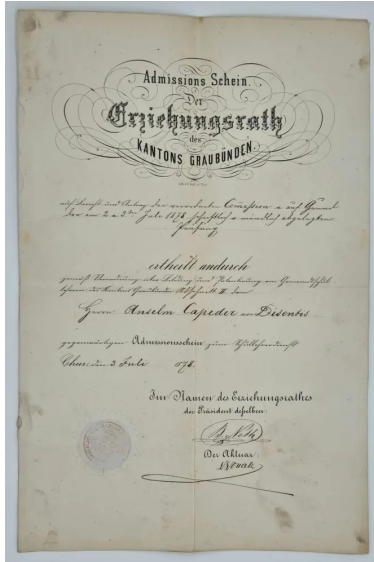 Admissions Schein.
Der
Erziehungsrath
des
KANTONS GRAUBÜNDEN.
auf Bericht und Antrag der verordneten Commission u. auf Grund
der am 2 u 3ten Juli 1878 schriftlich u mündlich abgelegten
Prüfung
ertheilt andurch
gemäß Verordnung über Bildung und Patentirung von Gemeindsschul
lehrern des Kantons Graubünden Abschnitt II dem
Herrn Anselm Capeder von Disentis
gegenwärtigen Admissionsschein zum Schullehrerberuf
Chur, den 3 Juli 1878.
Im Namen des Erziehungsrathes
der Präsident desselben
Der Aktuar